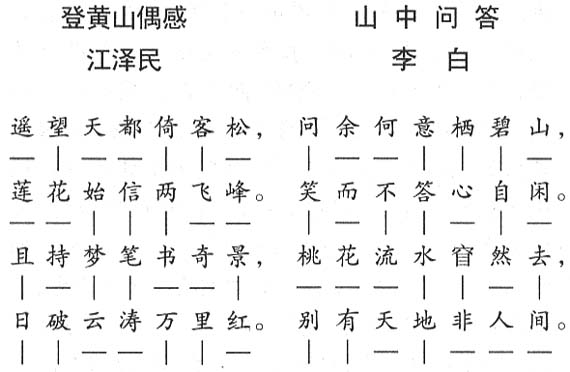 登黄山偶感
江泽民
遥望天都倚客松，
莲花始信两飞峰。
且持梦笔书奇景，
日破云涛万里红。
山中问答
李白
问余何意栖碧山，
笑而不答心自闲。
桃花流水窅然去，
别有天地非人间。